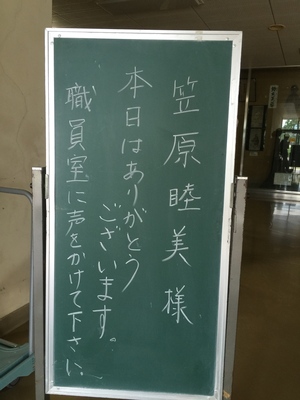 笠原睦美様
本日はありがとう
ございます。
職員室に声をかけて下さい、